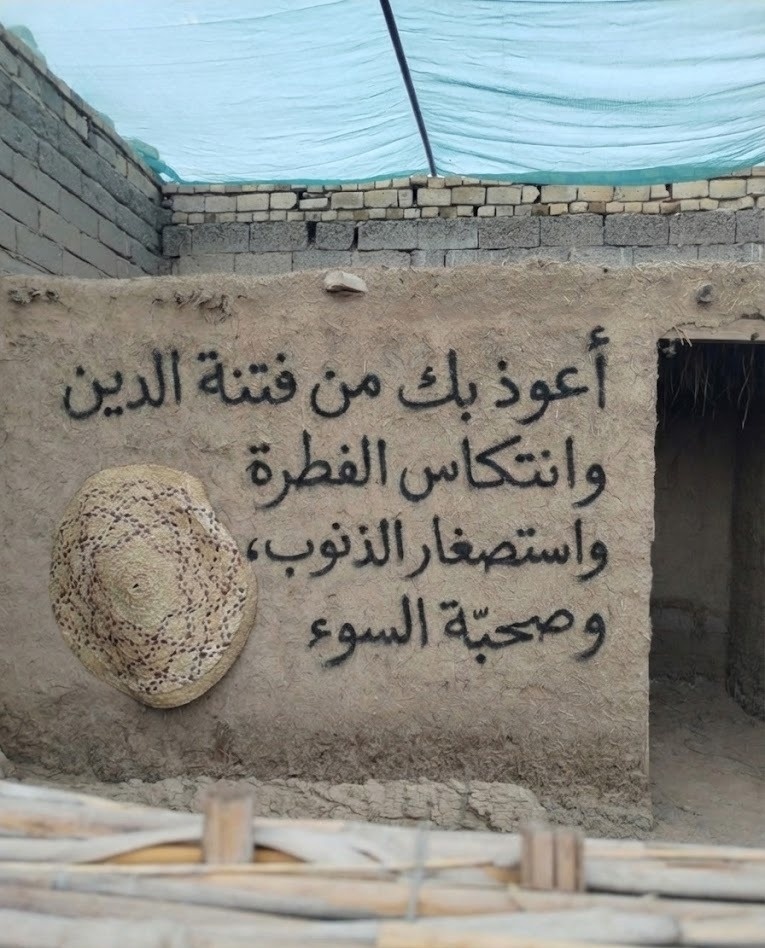 أعوذ بك من فتنة الدين
وانتكاس الفطرة
واستصغار الذنوب،
وصحبّة السوء